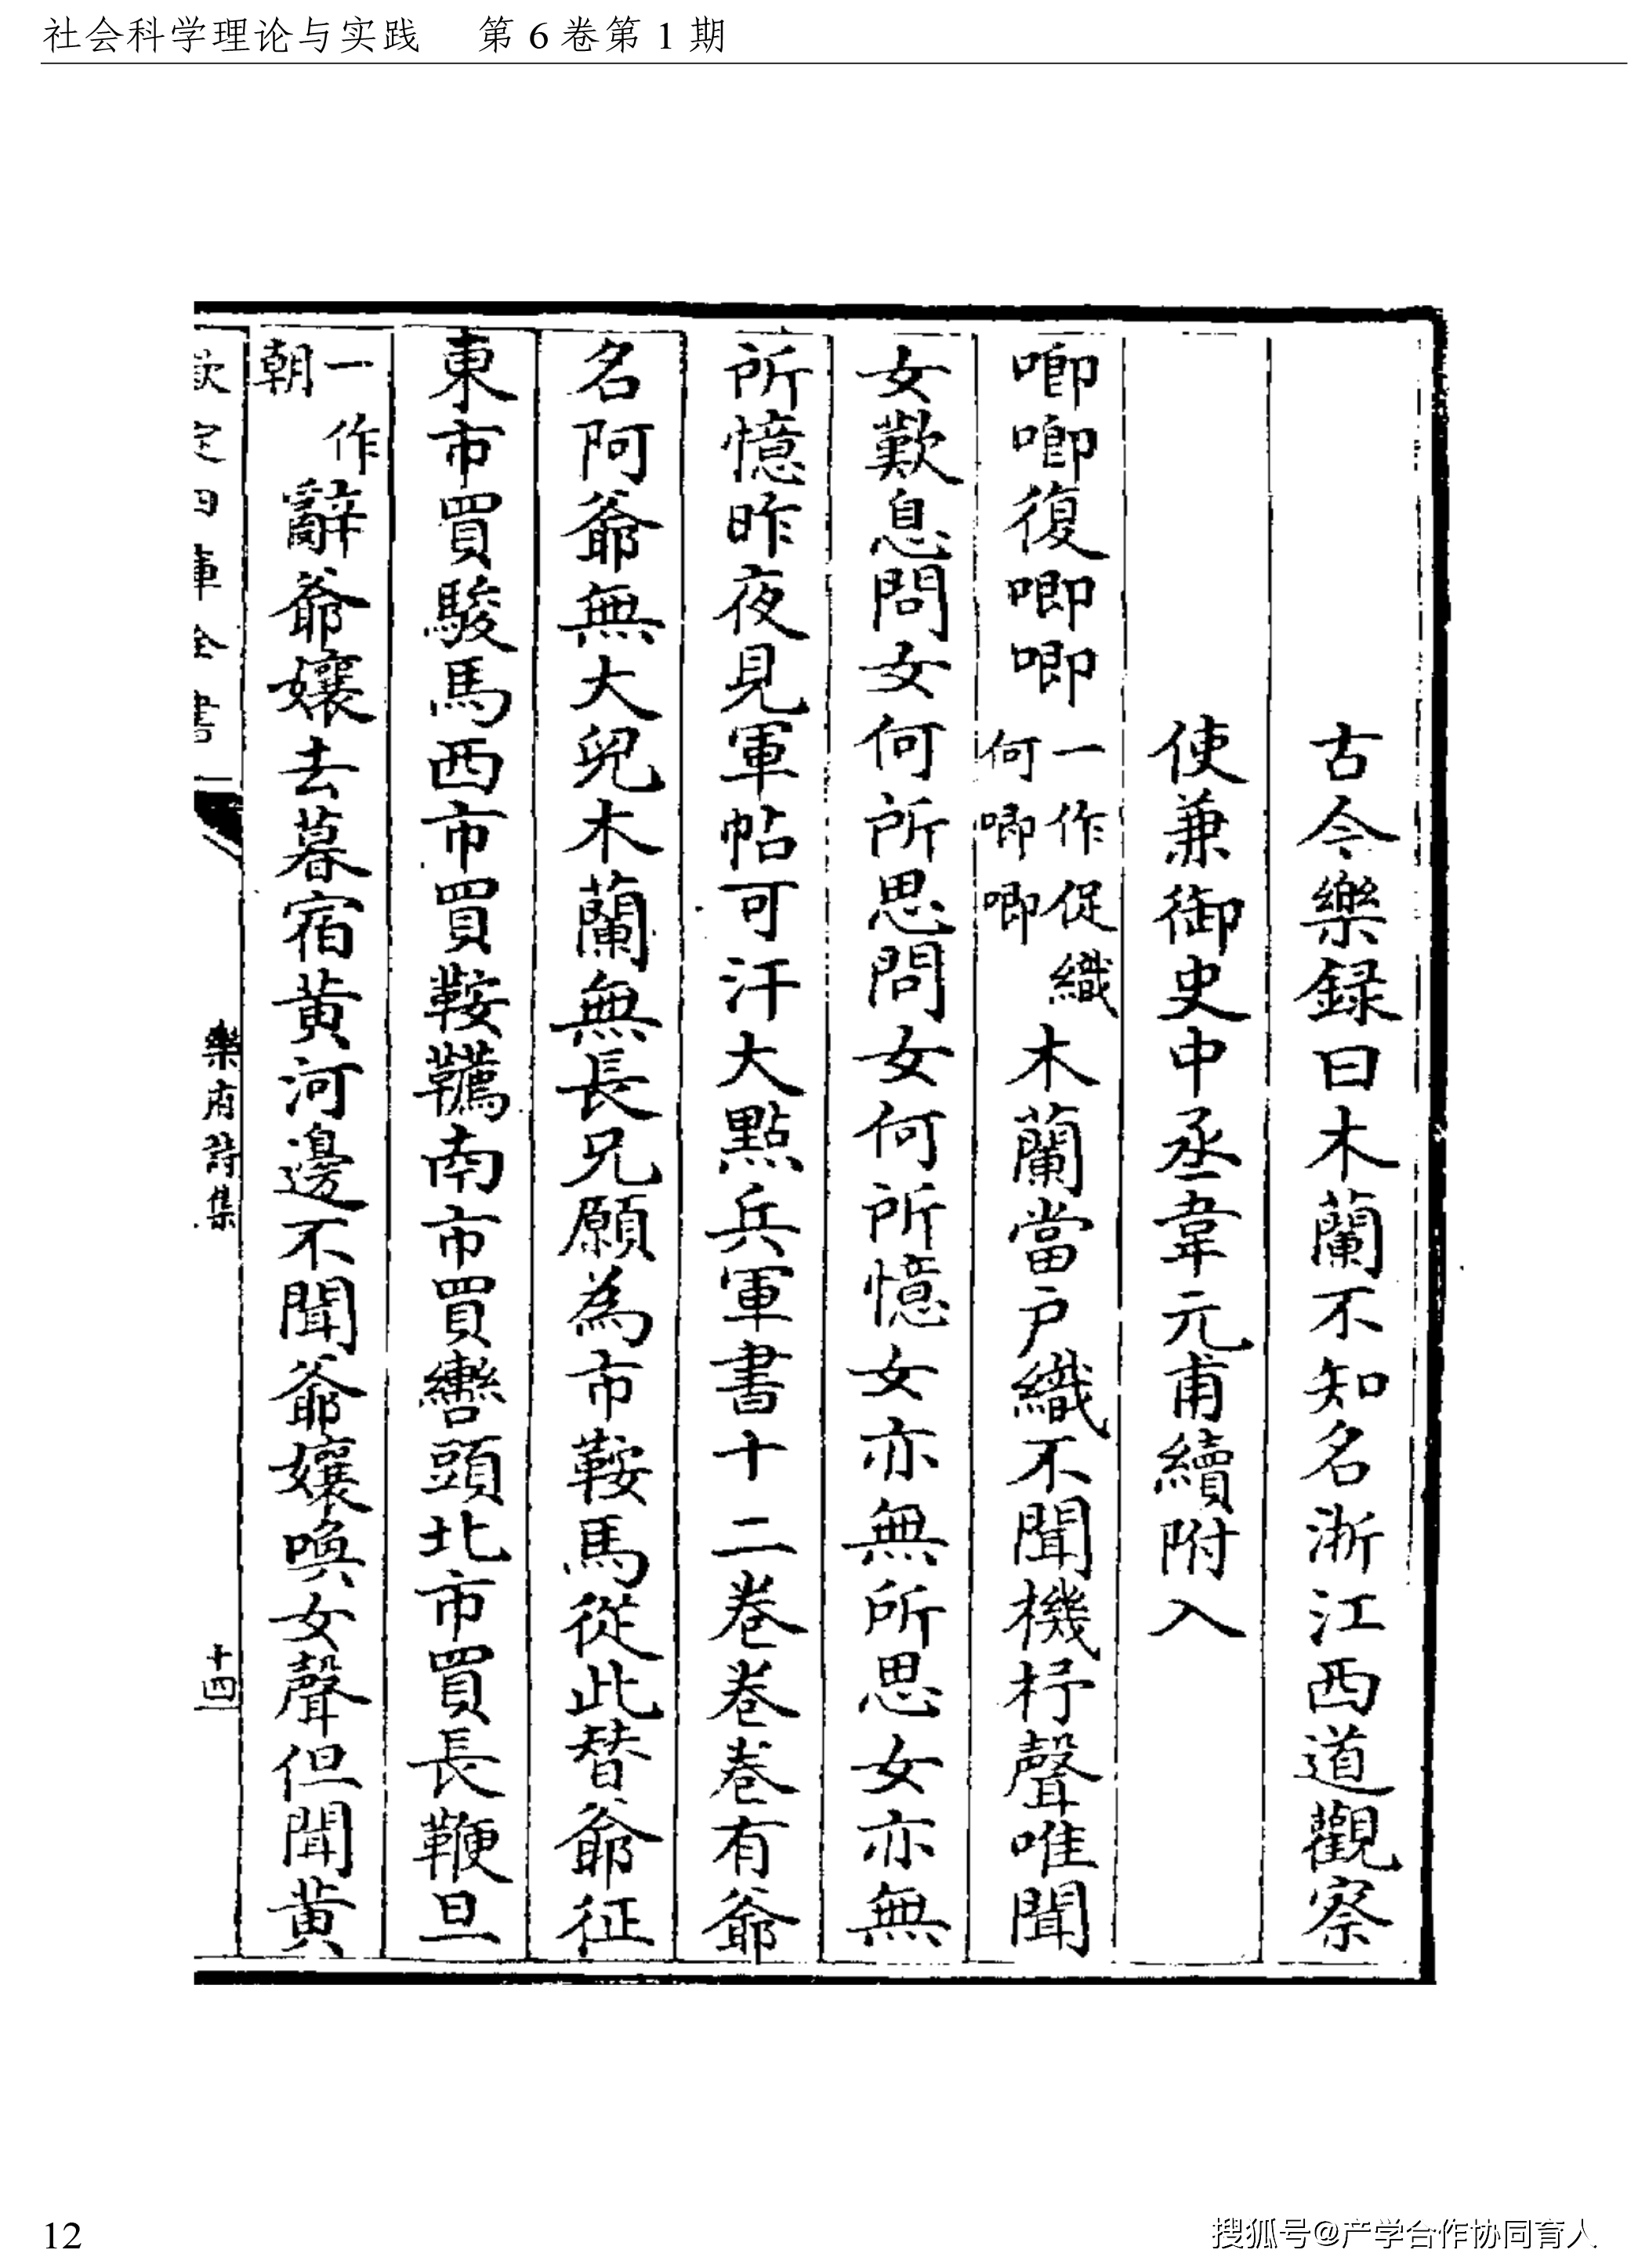 社会科学理论与实践 第 6 卷第 1 期
古今樂録曰木蘭不知名浙江西道觀察
使兼御史中丞韋元甫續附入
唧唧復唧唧一作促織何唧唧木蘭當户織不聞機杼聲唯聞
女歎息問女何所思問女何所憶女亦無所思女亦無
所憶昨夜見軍帖可汗大點兵軍書十二卷卷卷有爺
名阿爺無大兒木蘭無長兄願為市鞍馬從此替爺征
東市買駿馬西市買鞍韉南市買轡頭北市買長鞭旦
一作朝辭爺孃去暮宿黄河邊不聞爺孃喚女聲但聞黄
欽定四庫全書
樂府詩集
十四
12
搜狐号@产学合作协同育人